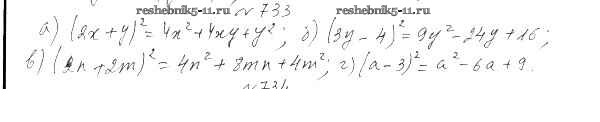 № 733
reshebnik5-11.ru reshebnik5-11.ru
а) (2x+y)²=4x²+4xy+y²; б) (3y-4)²=9y²-24y+16;
в) (2n+2m)²=4n²+8mn+4m²; г) (a-3)²=a²-6a+9.
№ 734